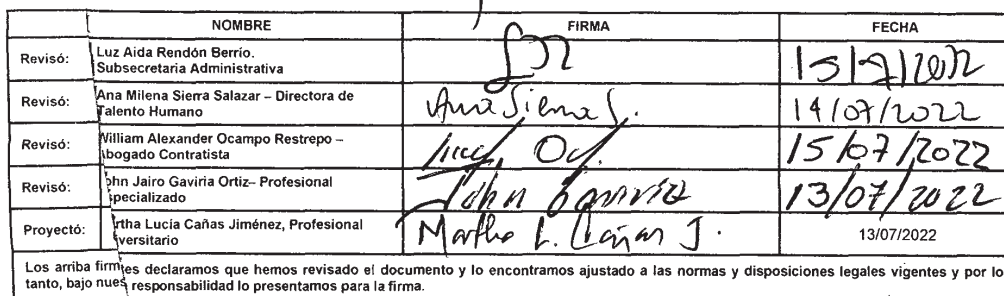 NOMBRE FIRMA FECHA
Revisó: Luz Aida Rendón Berrío.
Subsecretaria Administrativa
15/7/2022
Revisó: Ana Milena Sierra Salazar – Directora de
Talento Humano
Ana Sierra S.
14/07/2022
Revisó: William Alexander Ocampo Restrepo –
Abogado Contratista
15/07/2022
Revisó: ohn Jairo Gaviria Ortiz– Profesional
specializado
John Gaviria
13/07/2022
Proyectó: rtha Lucía Cañas Jiménez, Profesional
versitario
Martha L. Cañas J.
13/07/2022
Los arriba firm es declaramos que hemos revisado el documento y lo encontramos ajustado a las normas y disposiciones legales vigentes y por lo
tanto, bajo nues responsabilidad lo presentamos para la firma.